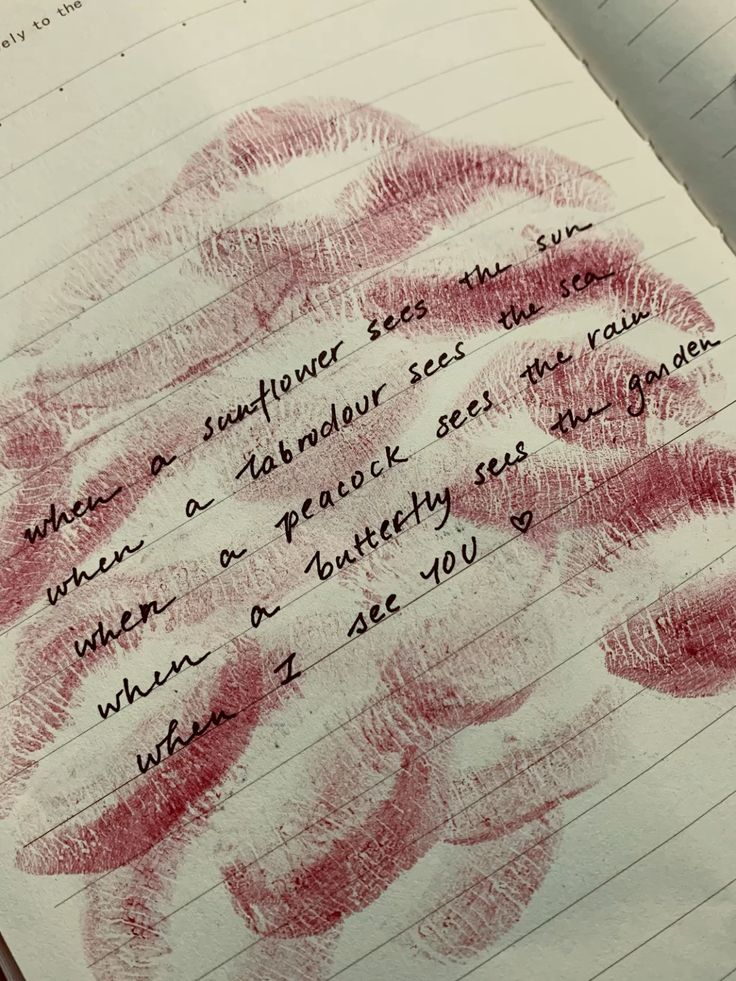 ely to the
when a sunflower sees the sun
when a labrodour sees the sea
when a peacock sees the rain
when a butterfly sees the garden
when I see YOU ♡